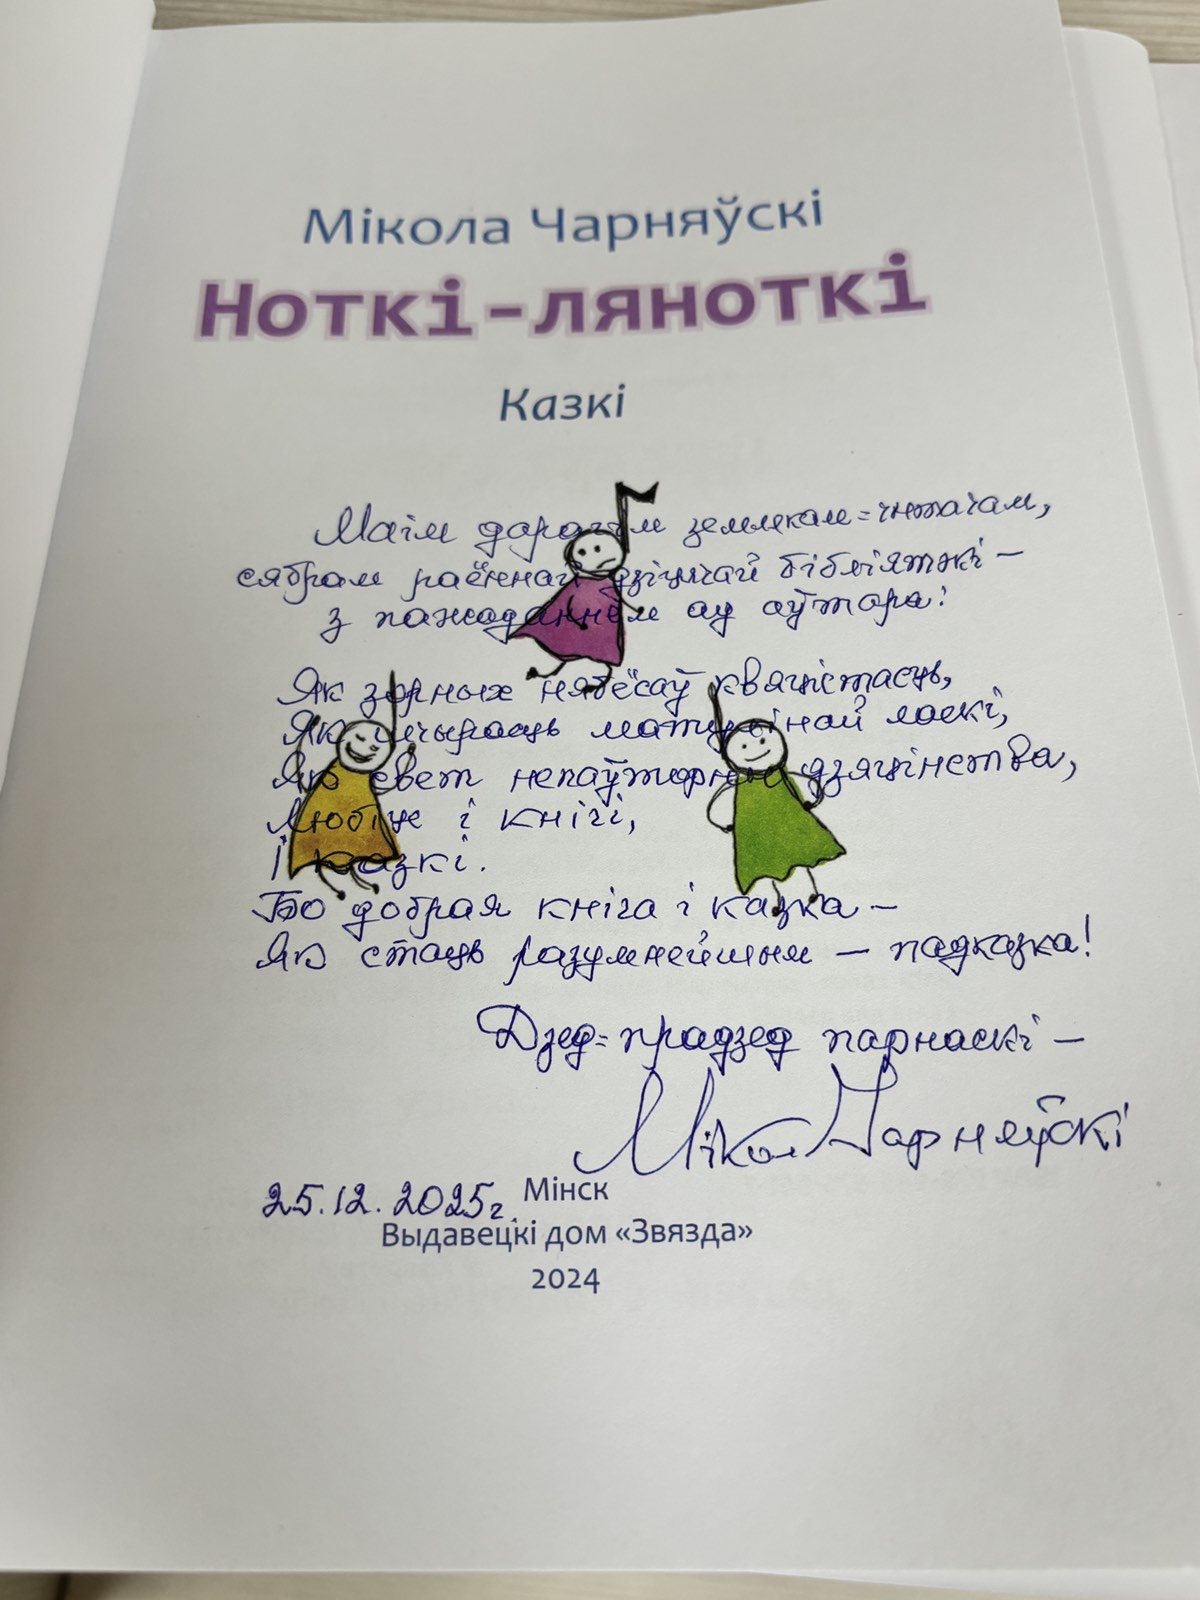 Мікола Чарняўскі
Ноткі-ляноткі
Казкі
Маім дарагім землякам=чытачам,
сябрам раённай дзіцячай бібліятэкі –
з пажаданнем ад аўтара:
Як зорных нябёсаў квяцістасць,
Як шчырасць матулінай ласкі,
Як свет непаўторны дзяцінства,
Любіце і кнігі,
І казкі.
Бо добрая кніга і казка –
Як стаць разумнейшым – падказка!
Дзед=прадзед парнаскі –
Мікола Чарняўскі
25.12.2025г.
Мінск
Выдавецкі дом «Звязда»
2024